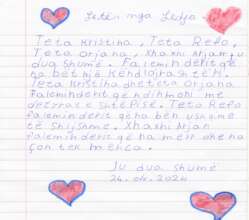 Letër nga Ledja
Teta Kristina, Teta Refo,
Teta Orjana, Xhaxhi Arjan ju
dua shumë. Faleminderit që
na bët një kënd lojrash të ri.
Teta Kristina dhe teta Orjana
Faleminderit që ndihmoni me
detyrat e shtëpisë. Teta Refo
faleminderit që na bën ushqime
të shijshme. Xhaxhi Arjan
faleminderit që na merr dhe na
çon tek
Ju dua shumë
24.04.2024